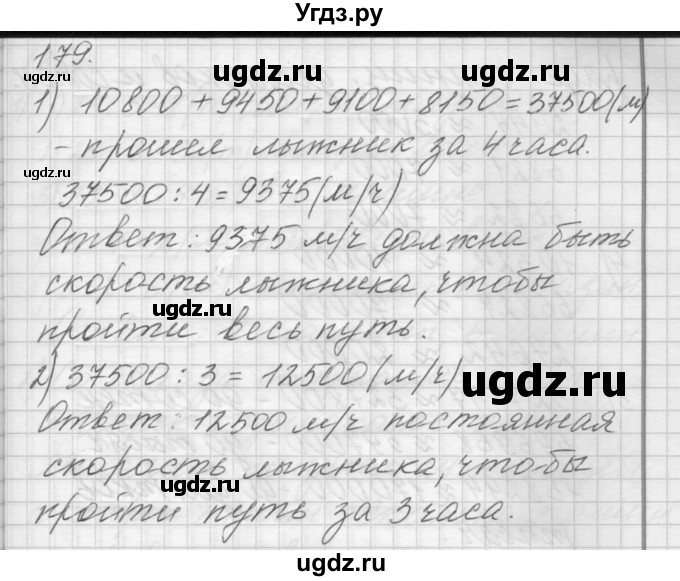 Угдз.ру
179.
ugdz.ru
ugdz.ru
ugdz.ru
1) 10800 + 9450 + 9100 + 8150 = 37500 (м)
- прошел лыжник за 4 часа.
ugdz.ru
37500 : 4 = 9375 (м/ч)
Ответ: 9375 м/ч должна быть
скорость лыжника, чтобы
ugdz.ru
пройти весь путь.
2) 37500 : 3 = 12500 (м/ч)
ugdz.ru
Ответ: 12500 м/ч постоянная
скорость лыжника, чтобы
ugdz.ru
пройти путь за 3 часа.
ugdz.ru
ugdz.ru
Угдз.ру